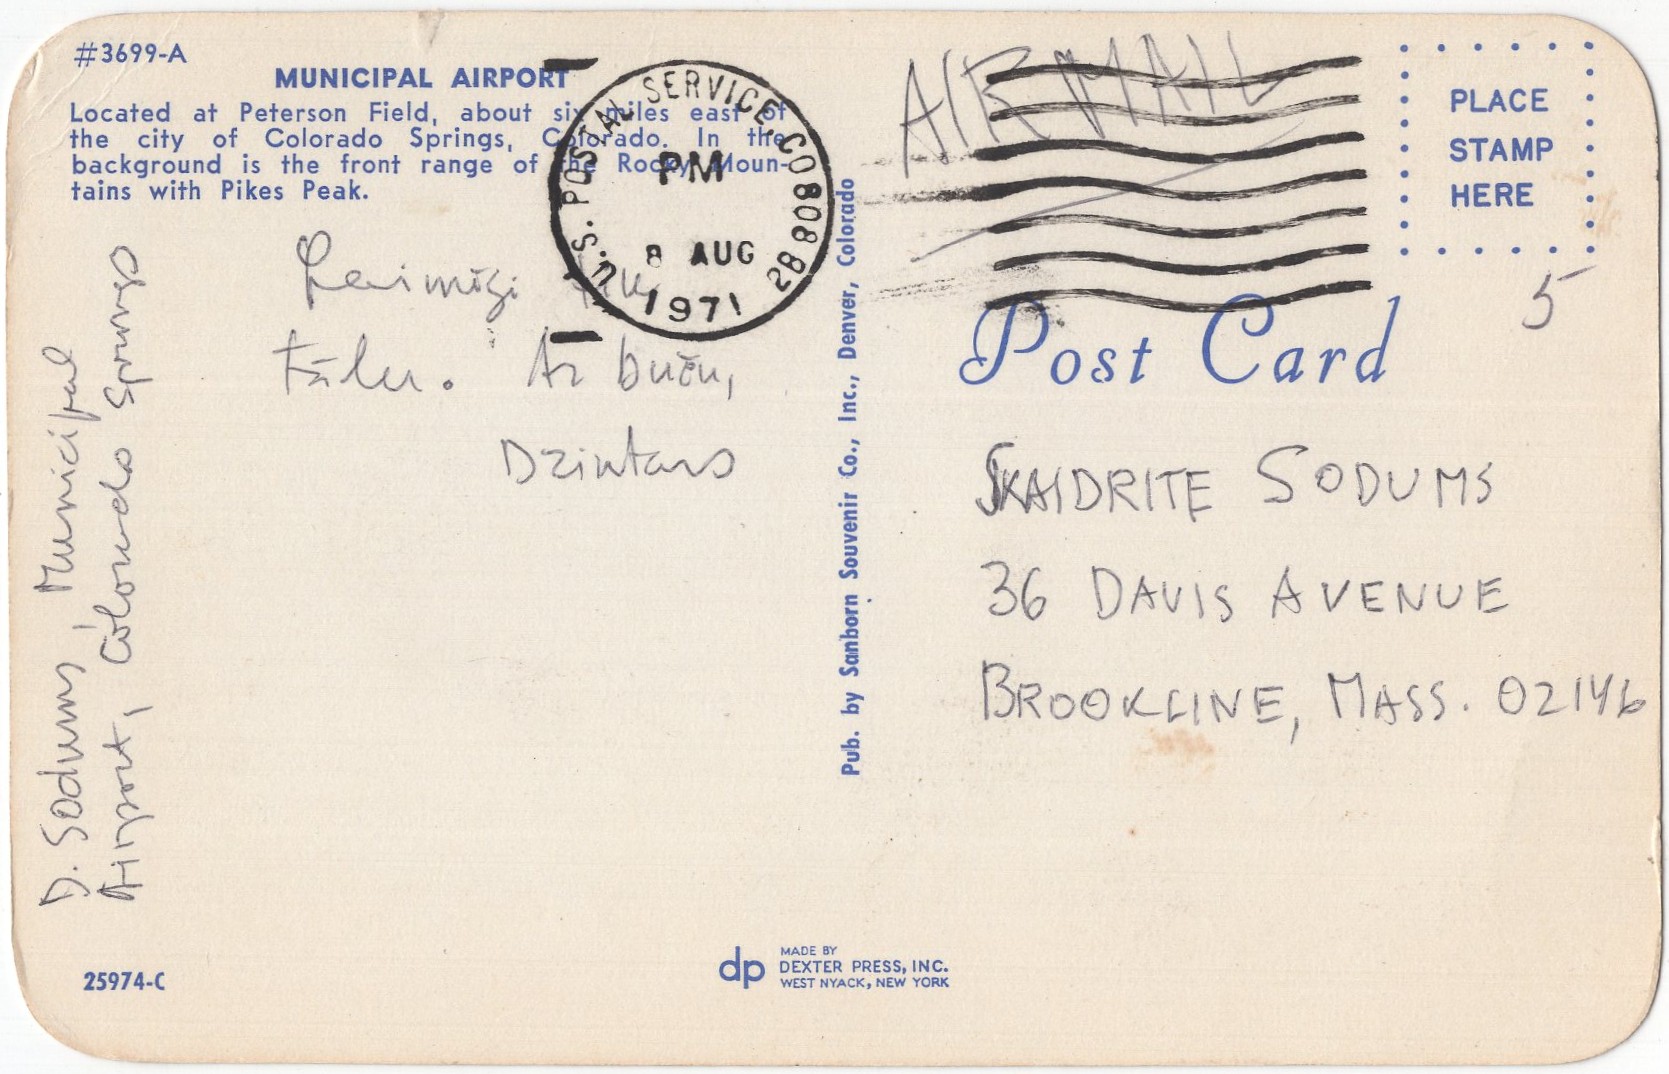 #3699-A
MUNICIPAL AIRPORT
Located at Peterson Field, about six miles east of
the city of Colorado Springs, Colorado. In the
background is the front range of the Rocky Moun-
tains with Pikes Peak.
Laimīgi
tālu. Ar buču,
Dzintars
D. Sodums Municipal
Airport, Colorado Springs
25974-C
U.S. POSTAL SERVICE, CO 808 28
PM
8 AUG
1971
AIR MAIL
PLACE
STAMP
HERE
5
Post Card
SKAIDRITE SODUMS
36 DAVIS AVENUE
BROOKLINE, MASS. 02146
Pub. by Sanborn Souvenir Co., Inc., Denver, Colorado
dp
MADE BY
DEXTER PRESS, INC.
WEST NYACK, NEW YORK